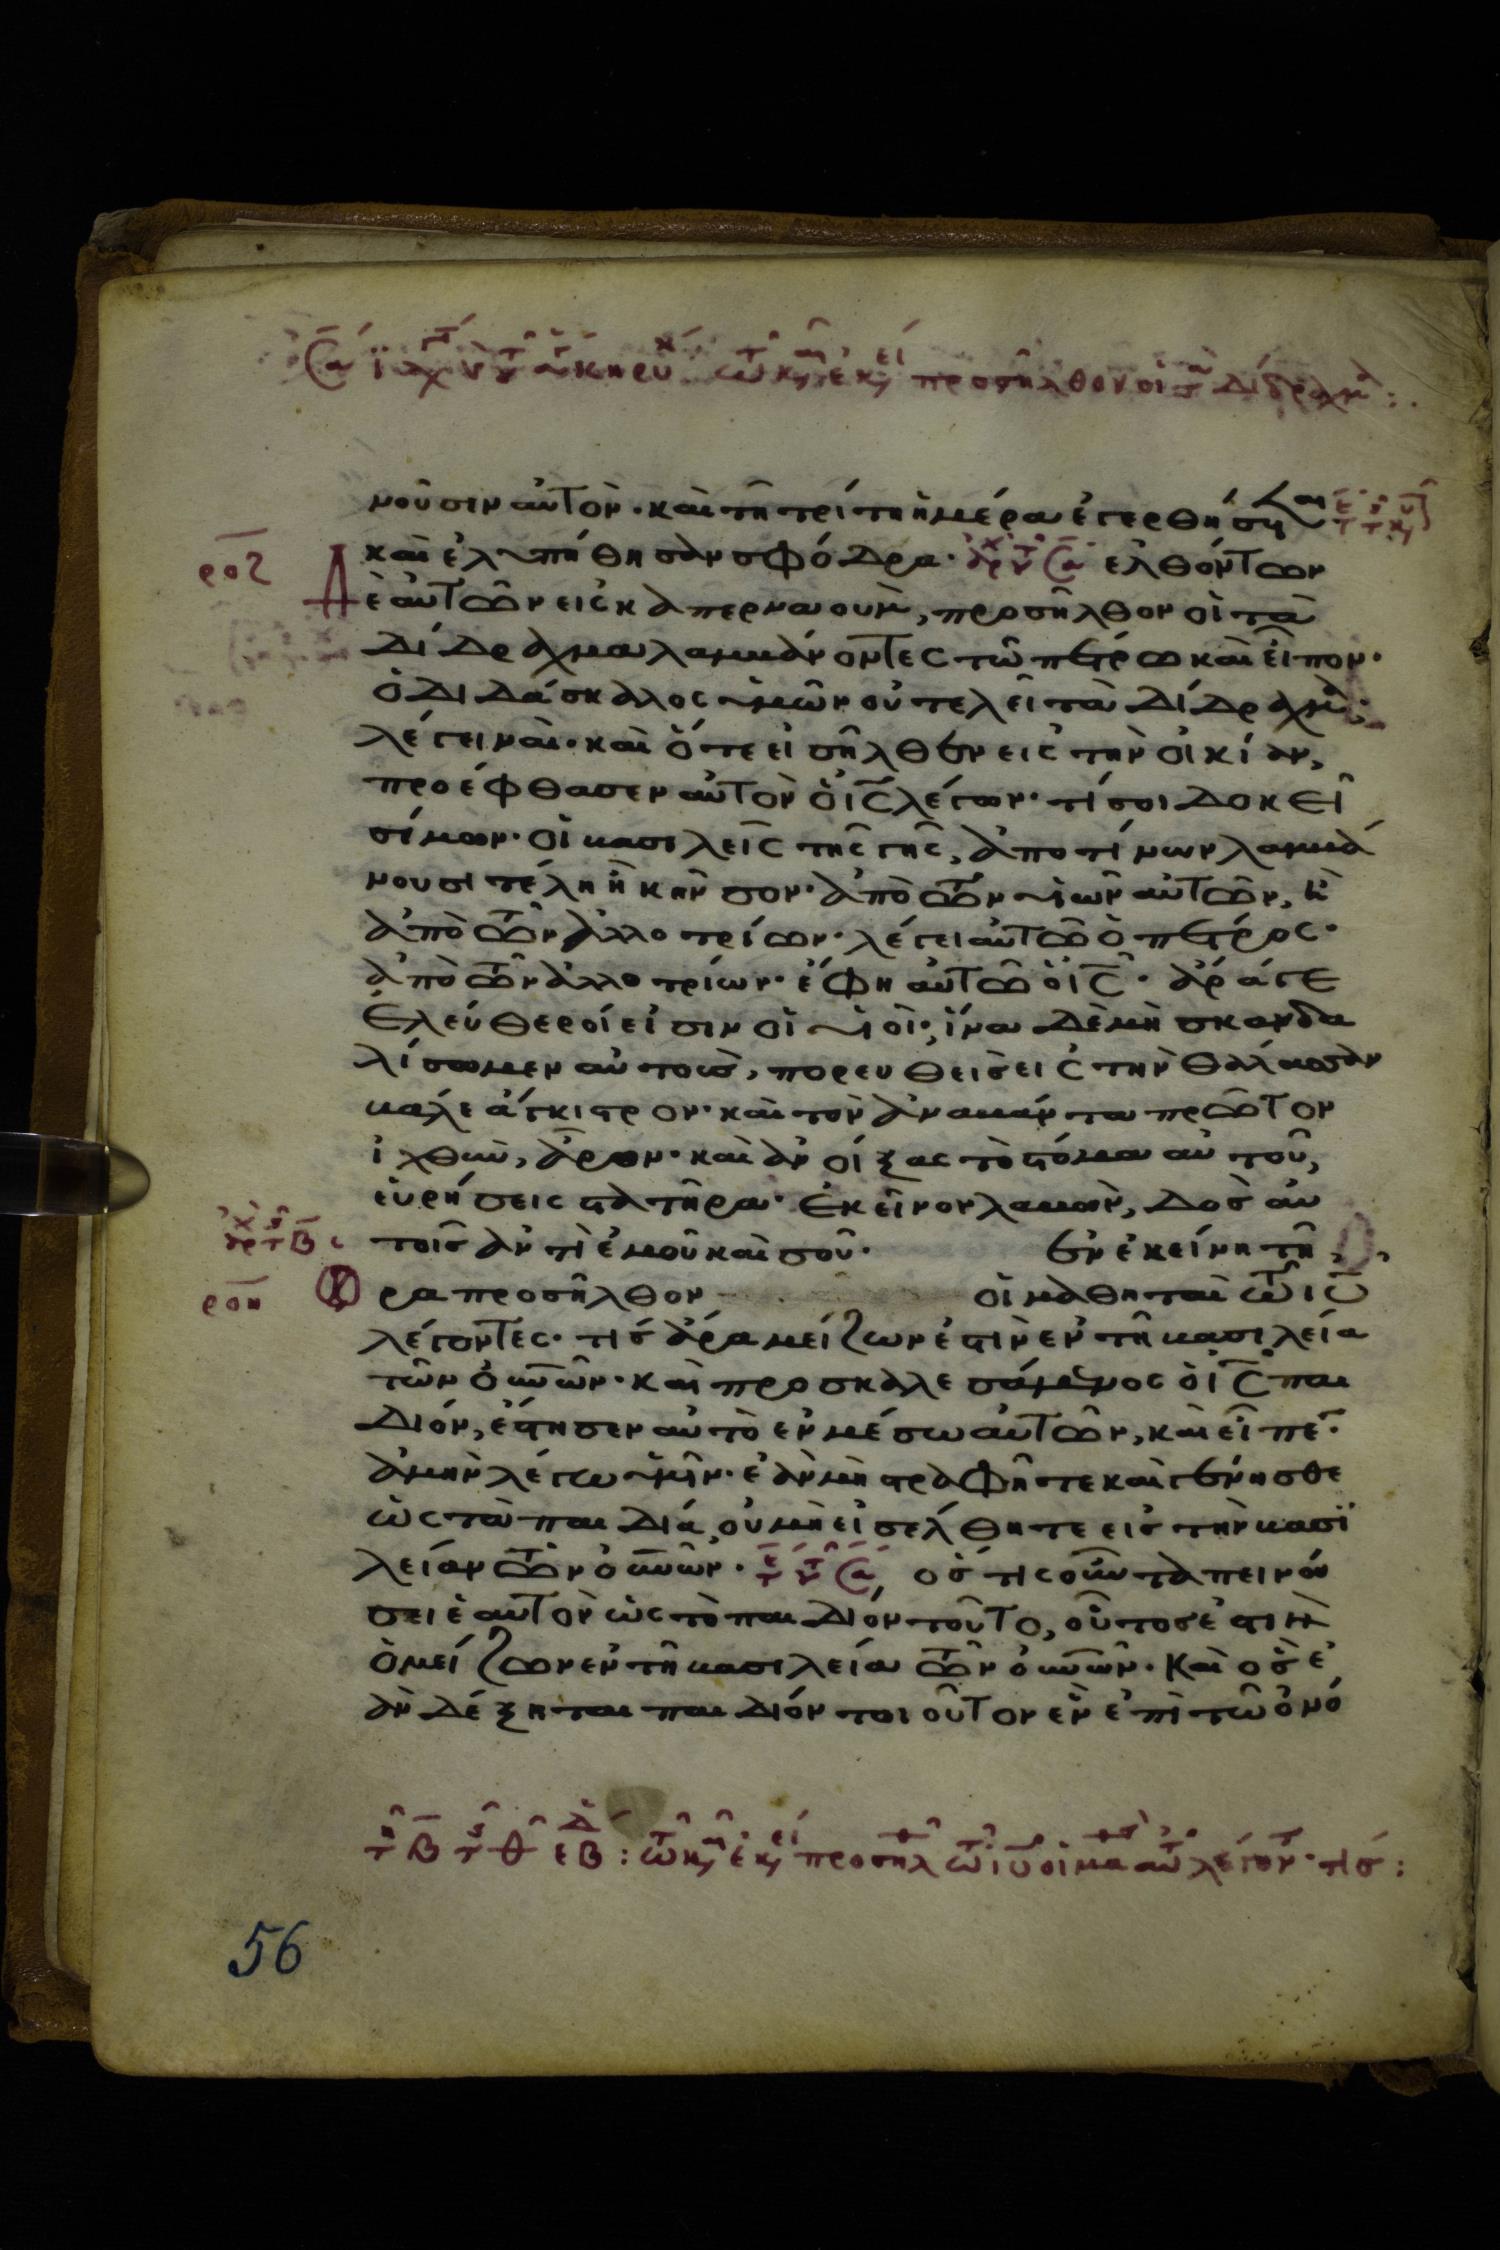 προσῆλθον οἱ τὰ δίδραχμ:
νοῦσιν αὐτὸν· καὶ τῆ τρίτη ἡμέρα ἐγερθήσεται
ροζ
καὶ ἐλυπήθησαν σφόδρα· ἐλθόντων
Δ
ὲ αὐτῶν εἰς καπερναοὺμ, προσῆλθον οἱ τὰ
δίδραχμα λαμβάνοντες τῶ πέτρω καὶ εἶπον·
ὁ διδάσκαλος ὑμῶν οὐ τελεῖ τὰ δίδραχμα;
λέγει ναί· καὶ ὅτε εἰσῆλθεν εἰς τὴν οἰκίαν,
προέφθασεν αὐτὸν ὁ ις λέγων· τί σοι δοκεῖ
σίμων· οἱ βασιλεῖς τῆς γῆς, ἀπο τίνων λαμβά
νουσι τέλη ἢ κῆνσον· ἀπὸ τῶν υἱῶν αὐτῶν, ἢ
ἀπὸ τῶν ἀλλοτρίων· λέγει αὐτῶ ὁ πέτρος·
ἀπὸ τῶν ἀλλοτρίων· ἔφη αὐτῶ ὁ ις· ἄρά γε
ἐλεύθεροί εἰσιν οἱ υἱοί· ἵνα δὲ μὴ σκανδα
λίσωμεν αὐτοὺς, πορευθεὶς εἰς τὴν θάλασσαν
βάλε ἄγκιστρον· καὶ τὸν ἀναβάντα πρῶτον
ἰχθὺν, ἆρον· καὶ ἀνοίξας τὸ στόμα αὐτοῦ,
εὑρήσεις στατῆρα· ἐκεῖνον λαβὼν, δὸς αὐ
τοῖς ἀντὶ ἐμοῦ καὶ σοῦ· ἐν ἐκείνη τῆ
ροη
ρα προσῆλθον οἱ μαθηταὶ τῶ ιυ
λέγοντες· τίς ἄρα μείζων ἐστὶν ἐν τῆ βασιλεία
τῶν οὐνῶν· καὶ προσκαλεσάμενος ὁ ις παι
δίον, ἔστησεν αὐτὸ ἐν μέσω αὐτῶν, καὶ εἶπεν·
ἀμὴν λέγω ὑμῖν· ἐὰν μὴ στραφῆτε καὶ γένησθε
ὡς τὰ παιδία, οὐ μὴ εἰσέλθητε εἰς τὴν βασι
λείαν τῶν οὐνῶν· ὅστις οὖν ταπεινώ
σει ἑαυτὸν ὡς τὸ παιδίον τοῦτο, οὗτος ἐστιν
ὁ μείζων ἐν τῆ βασιλεία τῶν οὐνῶν· Καὶ ὃς ἐ
ὰν δέξηται παιδίον τοιοῦτον ἓν ἐπὶ τῶ ὀνό
προσηλ τῶ ιυ οἱ μα αὐ λέγον· τίς:
56